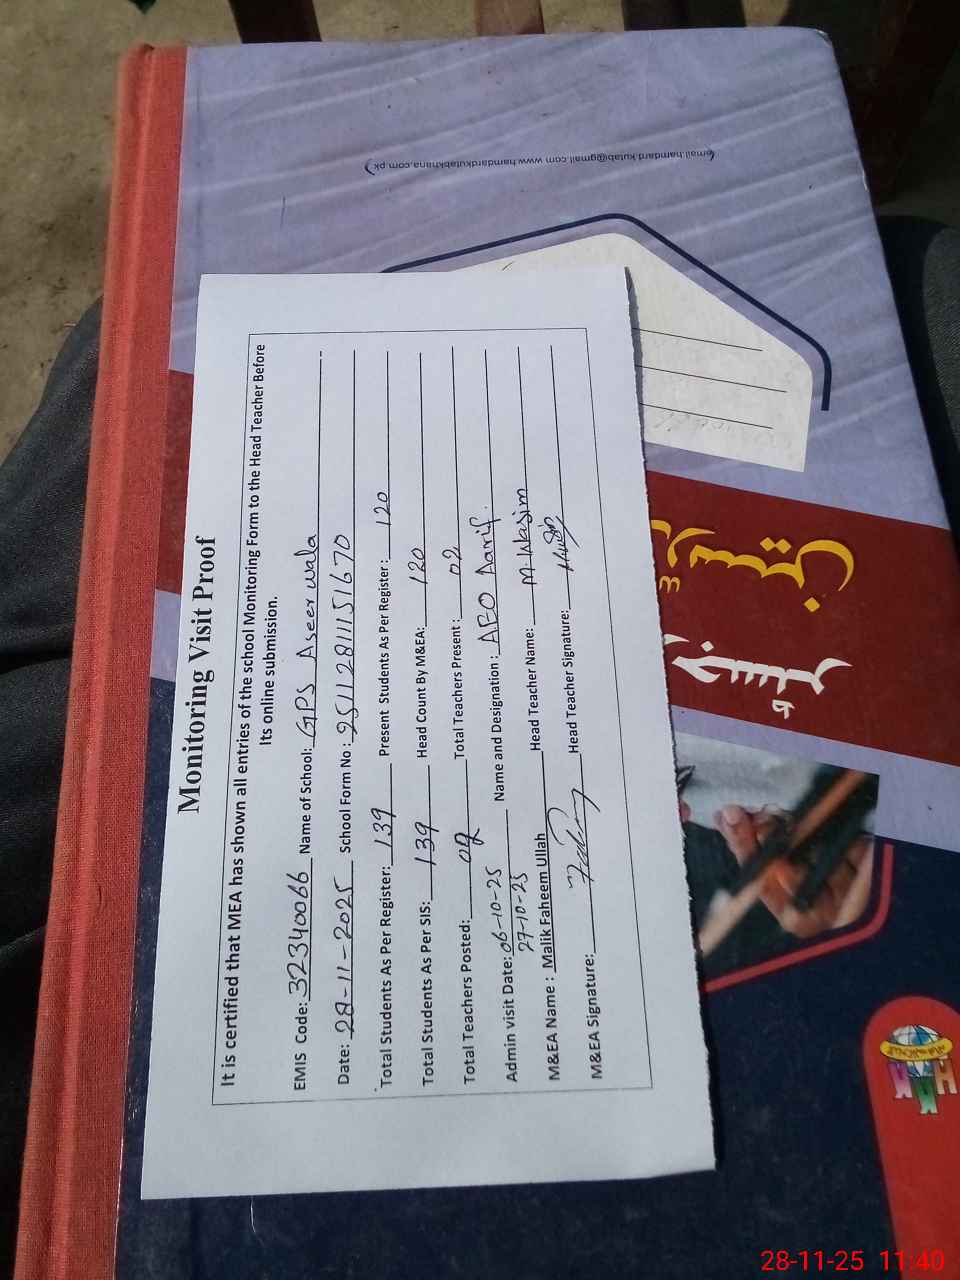 Monitoring Visit Proof
It is certified that MEA has shown all entries of the school Monitoring Form to the Head Teacher Before
Its online submission.
EMIS Code: 32340066 Name of School: GPS Aseer wala
Date: 28-11-2025 School Form No: 251128111151670
Total Students As Per Register: 139 Present Students As Per Register: 120
Total Students As Per SIS: 139 Head Count By M&EA: 120
Total Teachers Posted: 02 Total Teachers Present: 02
Admin visit Date: 06-10-25 Name and Designation: AEO Aarif.
27-10-25
M&EA Name: Malik Faheem Ullah Head Teacher Name: M. Wasim
M&EA Signature: Head Teacher Signature:
(email:hamdard.kutab@gmail.com www.hamdardkutabkhana.com.pk)
رجسٹر
28-11-25 11:40